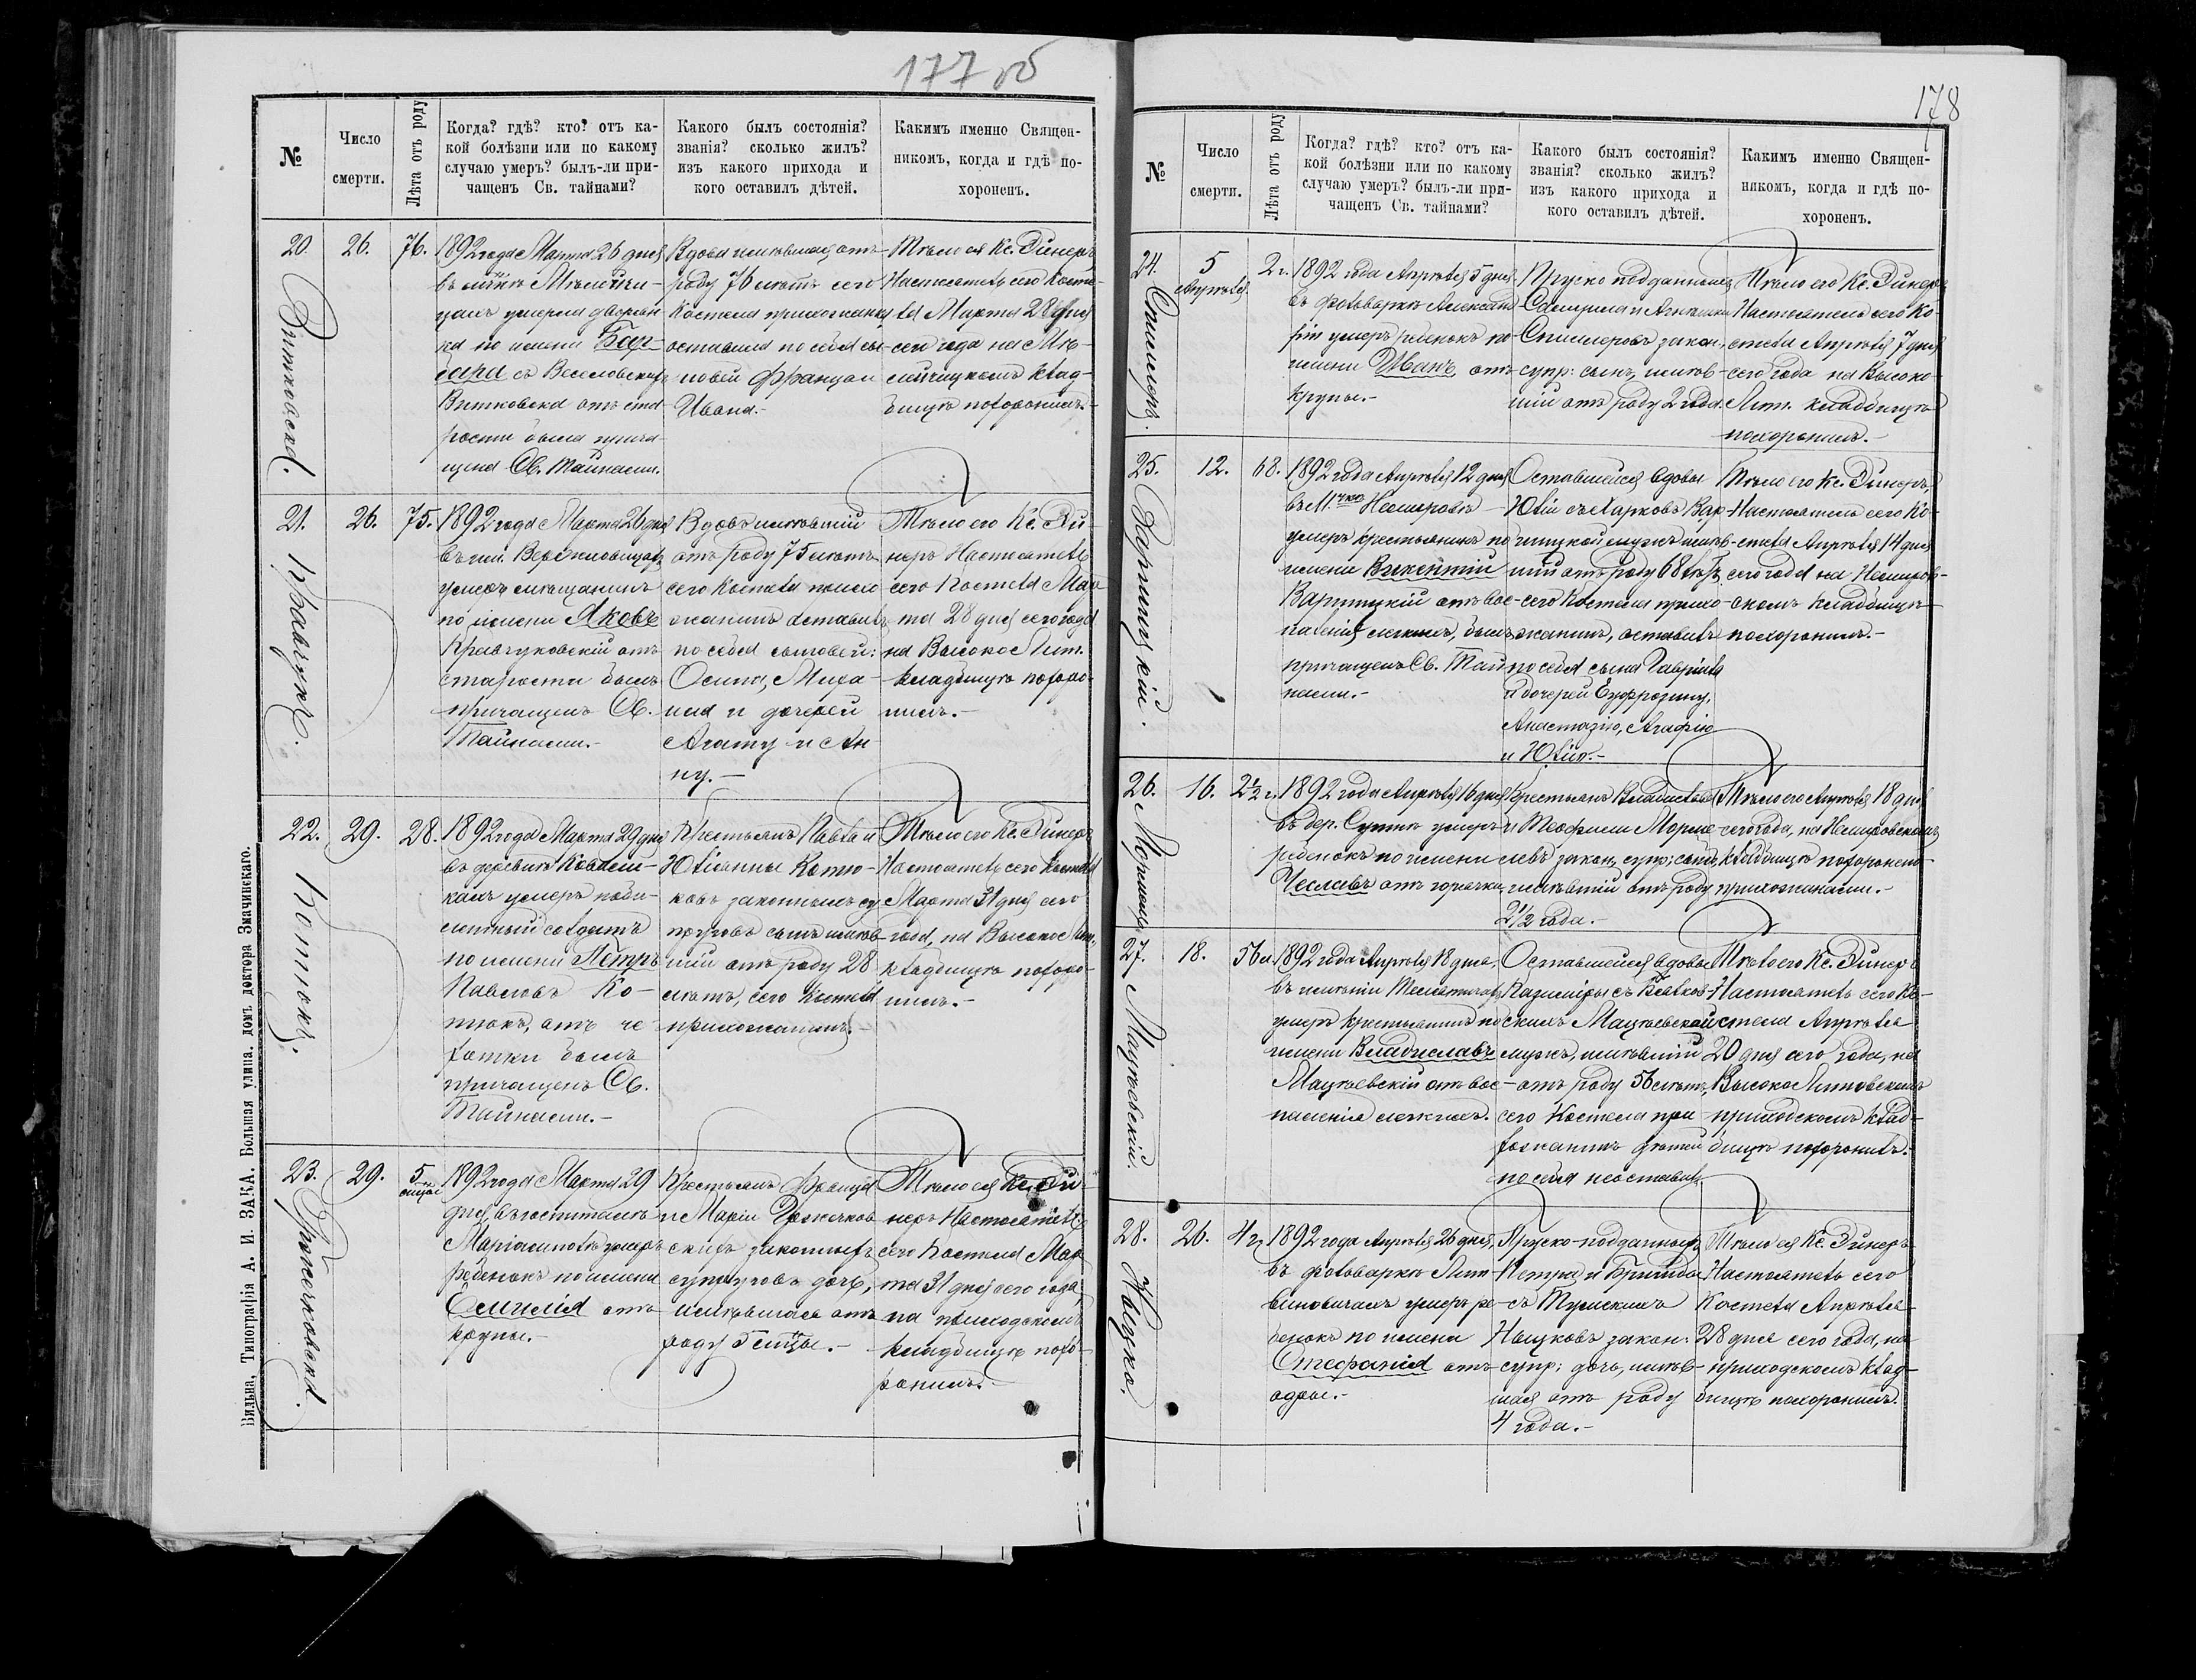 177 об
№
Число
смерти.
Лѣта отъ роду
Когда? гдѣ? кто? отъ ка-
кой болѣзни или по какому
случаю умеръ? былъ-ли при-
чащенъ Св. тайнами?
Какого былъ состоянія?
званія? сколько жилъ?
изъ какого прихода и
кого оставилъ дѣтей.
Какимъ именно Священ-
никомъ, когда и гдѣ по-
хороненъ.
20.
Витковска.
26.
76.
1892 года Марта 26 дня
въ
умерла дворян-
ка по имени Вар-
вара съ Веселовскихъ
Витковска отъ ста-
рости была прича-
щена Св. Тайнами.
Вдова имѣвшая отъ
роду 76 лѣтъ сего
Костела прихожанка
оставила по себѣ сы-
новей Францъ и
Ивана.-
Тѣло ея Кс. Эйнеръ
Настоятель сего Косте-
ла Марта 28 дня
сего года на
клад-
бищѣ похоронилъ.-
21.
Кравчукъ.
26.
75.
1892 года Марта 26 дня
въ им. Верхиовицахъ
умеръ мѣщанинъ
по имени Яковъ
Кравчуковскій отъ
старости былъ
причащенъ Св.
Тайнами.-
Вдовъ имѣвшій
отъ роду 75 лѣтъ
сего Костела прихо-
жанинъ оставилъ
по себѣ сыновей:
Осипа, Миха-
ила и дочерей
Агату и Ан-
ну.-
Тѣло его Кс. Эй-
неръ Настоятель
сего Костела Мар-
та 28 дня сего года
на Высоко Лит.
кладбищѣ похоро-
нилъ.-
22.
Котюкъ.
29.
28.
1892 года Марта 29 дня
въ деревнѣ
умеръ
солдатъ
по имени Петръ
Павловъ Ко-
тюкъ, отъ ча-
хотки былъ
причащенъ Св.
Тайнами.-
Крестьянъ Павла и
Юліанны Котю-
ковъ законныхъ су-
пруговъ сынъ имѣв-
шій отъ роду 28
лѣтъ, сего Костела
прихожанинъ.-
Тѣло его Кс. Эйнеръ
Настоятель сего Костела
Марта 31 дня сего
года, на Высоко Лит.
кладбищѣ похоро-
нилъ.-
23.
29.
5
1892 года Марта 29
дня, въ
умеръ
ребенокъ по имени
Емилія отъ
крупы.-
Крестьянъ Франца
и Маріи
скихъ законныхъ
супруговъ дочь,
имѣвшая отъ
роду 5 мцы.-
Тѣло ея Кс. Эй-
неръ Настоятель
сего Костела Мар-
та 31 дня сего года,
на приходскомъ
кладбищѣ похо-
ронилъ.-
Вильна, Типографія А. И. ЗАКА. Большая улица. домъ доктора Змачинскаго.
178
№
Число
смерти.
Лѣта отъ роду
Когда? гдѣ? кто? отъ ка-
кой болѣзни или по какому
случаю умеръ? былъ-ли при-
чащенъ Св. тайнами?
Какого былъ состоянія?
званія? сколько жилъ?
изъ какого прихода и
кого оставилъ дѣтей.
Какимъ именно Священ-
никомъ, когда и гдѣ по-
хороненъ.
24.
5
Апрѣля
2 г.
1892 года Апрѣля 5 дня,
въ фольваркѣ Александ-
ріи умеръ ребенокъ по
имени Иванъ отъ
крупы.-
Пруско подданныхъ
закон.
супр: сынъ, имѣв-
шій отъ роду 2 года.
Тѣло его Кс. Эйнеръ
Настоятель сего Ко-
стела Апрѣля 7 дня
сего года на Высоко-
Лит. кладбищѣ
похоронилъ.-
25.
Варпицкій.
12.
68.
1892 года Апрѣля 12 дня
въ М чкѣ Немировѣ
умеръ крестьянинъ по
имени Викентій
Варпицкій отъ вос-
паленія легкихъ, былъ
причащенъ Св. Тай-
нами.-
Оставшейся вдовы
Юліи съ Марковъ Вар-
пицкой мужъ имѣв-
шій отъ роду 68 лѣтъ,
сего Костела прихо-
жанинъ, оставилъ
по себѣ сына Гавріила
и дочерей Еуфрозину,
Анастазію, Агафію
и Юлію.-
Тѣло его Кс. Эйнеръ,
Настоятель сего Ко-
стела Апрѣля 14 дня
сего года на Немиров-
скомъ кладбищѣ
похоронилъ.-
26.
16.
2½ г.
1892 года Апрѣля 16 дня
въ дер. Сутнѣ умеръ
ребенокъ по имени
Чеславъ отъ горячки
Крестьянъ Владислава
и Теофили
закон. супр: сынъ,
имѣвшій отъ роду
2½ года.-
Тѣло его Апрѣля 18 дня
сего года, на Немировскомъ
кладбищѣ похоронено
прихожанами.-
27.
Мацѣевскій.
18.
56 л.
1892 года Апрѣля 18 дня,
въ имѣніи
умеръ крестьянинъ по
имени Владиславъ
Мацѣевскій отъ вос-
паленія легкихъ.
Оставшейся вдовы
Казиміры съ
скихъ Мацѣевской
мужъ, имѣвшій
отъ роду 56 лѣтъ,
сего Костела при-
хожанинъ дѣтей
по себѣ не оставилъ
Тѣло его Кс. Эйнеръ
Настоятель сего Ко-
стела Апрѣля
20 дня сего года, на
Высоко Литовскомъ
приходскомъ клад-
бищѣ похоронилъ.-
28.
26.
4 г.
1892 года Апрѣля 26 дня,
въ фольваркѣ Лит-
виновичахъ умеръ ре-
бенокъ по имени
Стефанія отъ
одры.-
Пруско-подданныхъ
Петра и Бригиды
съ
закон:
супр: дочь, имѣв-
шая отъ роду
4 года.-
Тѣло ея Кс. Эйнеръ
Настоятель сего
Костела Апрѣля
28 дня сего года, на
приходскомъ клад-
бищѣ похоронилъ.